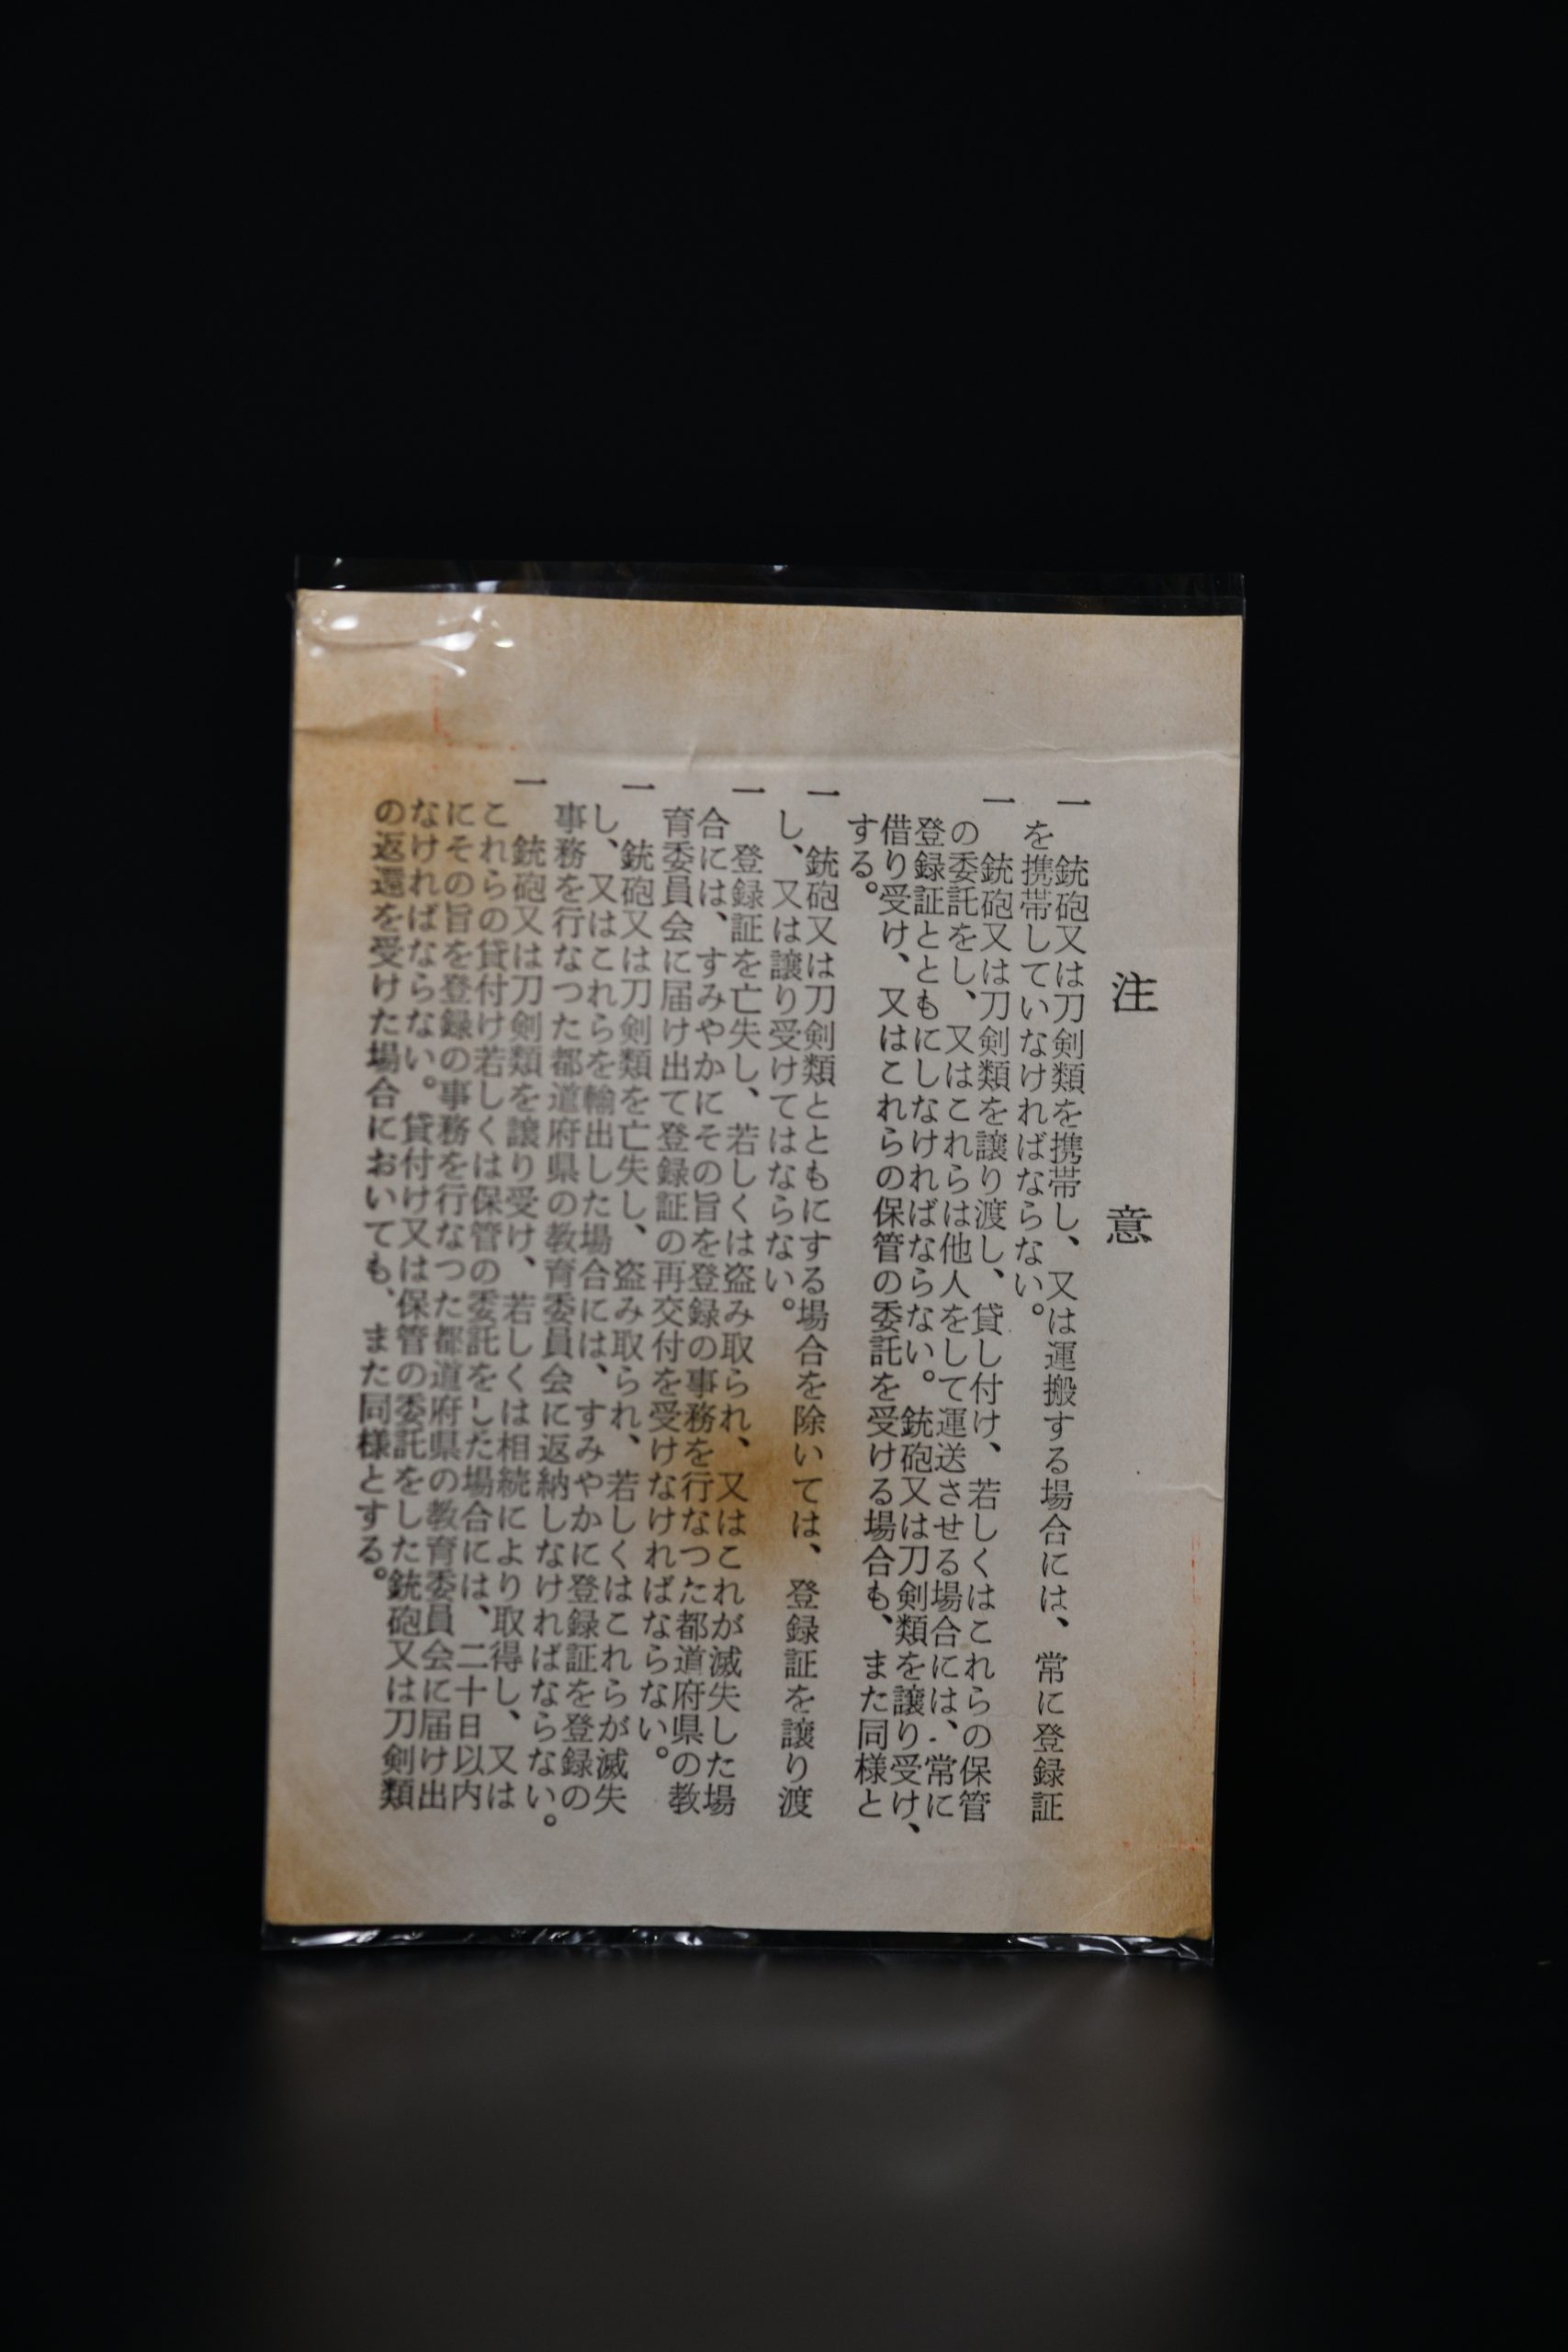 注意
一 銃砲又は刀剣類を携帯し、又は運搬する場合には、常に登録証
を携帯していなければならない。
一 銃砲又は刀剣類を譲り渡し、貸し付け、若しくはこれらの保管
の委託をし、又はこれらは他人をして運送させる場合には、常に
登録証とともにしなければならない。銃砲又は刀剣類を譲り受け、
借り受け、又はこれらの保管の委託を受ける場合も、また同様と
する。
一 銃砲又は刀剣類とともにする場合を除いては、登録証を譲り渡
し、又は譲り受けてはならない。
一 登録証を亡失し、若しくは盗み取られ、又はこれが滅失した場
合には、すみやかにその旨を登録の事務を行なつた都道府県の教
育委員会に届け出て登録証の再交付を受けなければならない。
一 銃砲又は刀剣類を亡失し、盗み取られ、若しくはこれらが滅失
し、又はこれらを輸出した場合には、すみやかに登録証を登録の
事務を行なつた都道府県の教育委員会に返納しなければならない。
一 銃砲又は刀剣類を譲り受け、若しくは相続により取得し、又は
これらの貸付け若しくは保管の委託をした場合には、二十日以内
にその旨を登録の事務を行なつた都道府県の教育委員会に届け出
なければならない。貸付け又は保管の委託をした銃砲又は刀剣類
の返還を受けた場合においても、また同様とする。